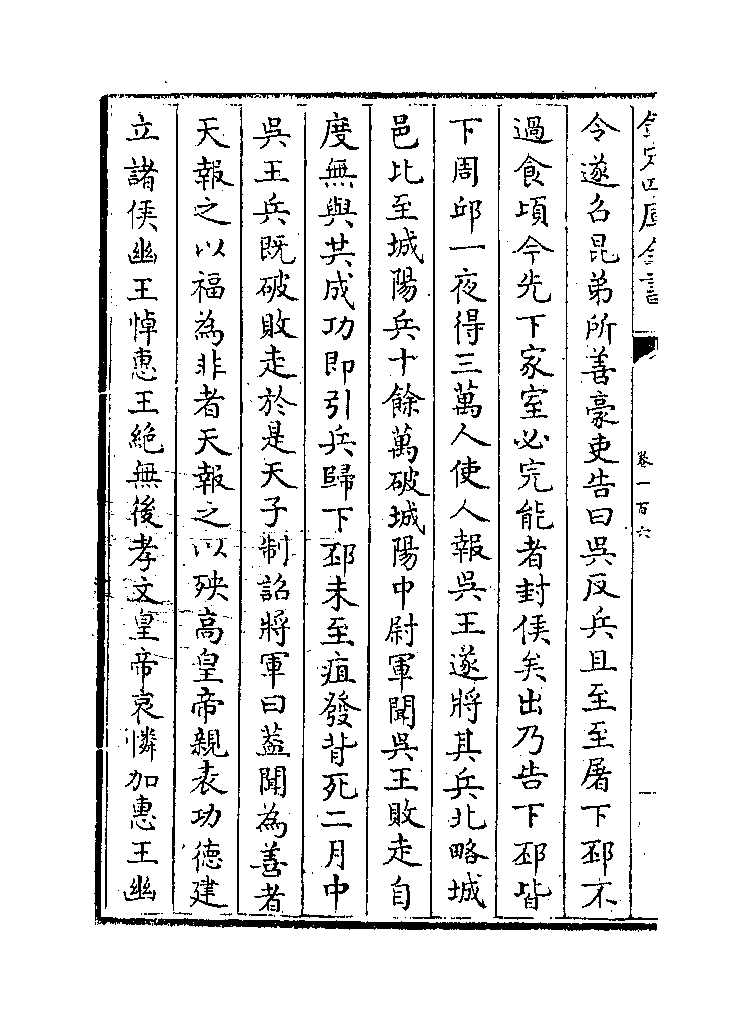 欽定四庫全書
卷一百六
令遂召昆弟所善豪吏告曰吳反兵且至至屠下邳不
過食頃今先下家室必完能者封侯矣出乃告下邳皆
下周邱一夜得三萬人使人報吳王遂將其兵北略城
邑比至城陽兵十餘萬破城陽中尉軍聞吳王敗走自
度無與共成功即引兵歸下邳未至疽發背死二月中
吳王兵既破敗走於是天子制詔將軍曰葢聞為善者
天報之以福為非者天報之以殃高皇帝親表功德建
立諸侯幽王悼惠王絶無後孝文皇帝哀憐加惠王幽